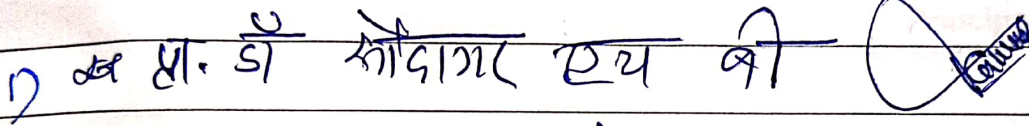 1) प्रा. डॉ सौदागर एच बी